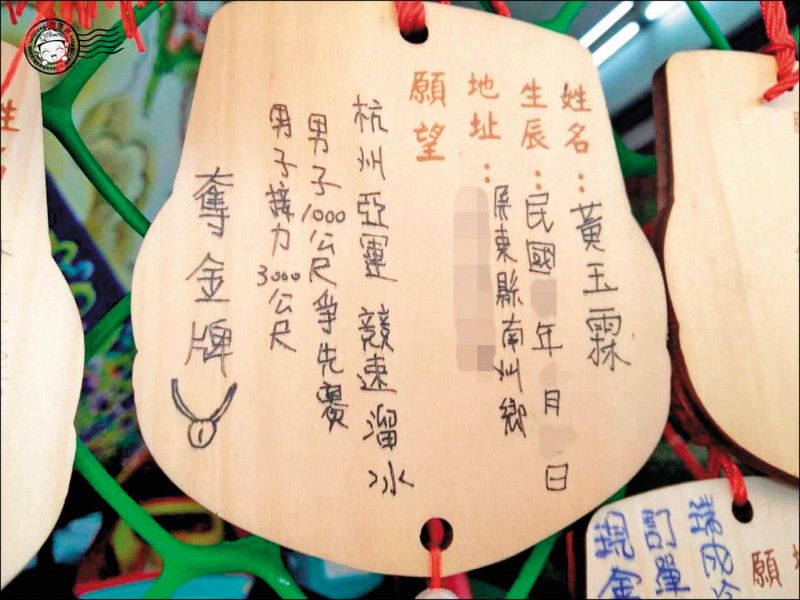 姓名：黃玉霖
生辰：民國 年 月 日
地址： 屏東縣南州鄉
願望
杭州亞運 競速溜冰
男子1000公尺爭先賽
男子接力3000公尺
奪金牌
1
願